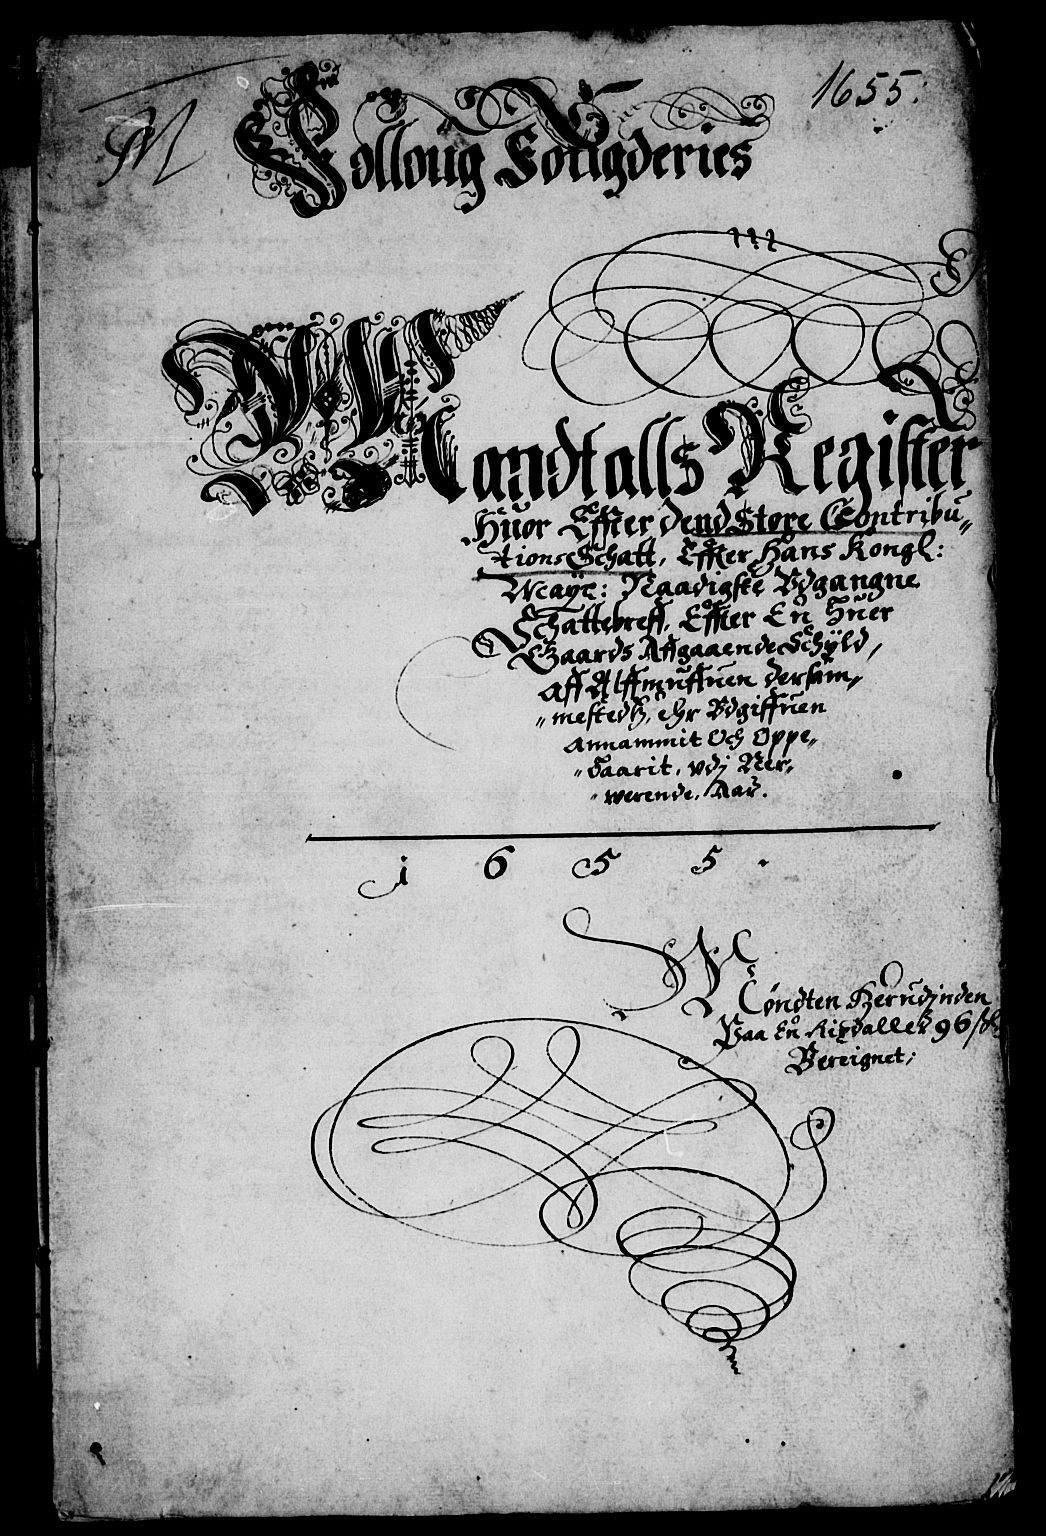 1655:
M
Folloug Fougderies
Mandtalls Register
Huor Effter dend Store Contribu„
tions Schatt, Effter Hans Kongl:
Mayt: Naadigste Vdgangne
Schattebreff, Effter En Huer
Gaards Affgaaende Schÿld,
Aff Allmuffuen dersam„
„mestedtz, ehr Vdgiffuen
Annammit Och Oppe„
„baarit, vdj Ner„
„werende, Aar.
1655.
Möndten Herudjnden
Paa En Rixdaller 96 ß
Bereignet;